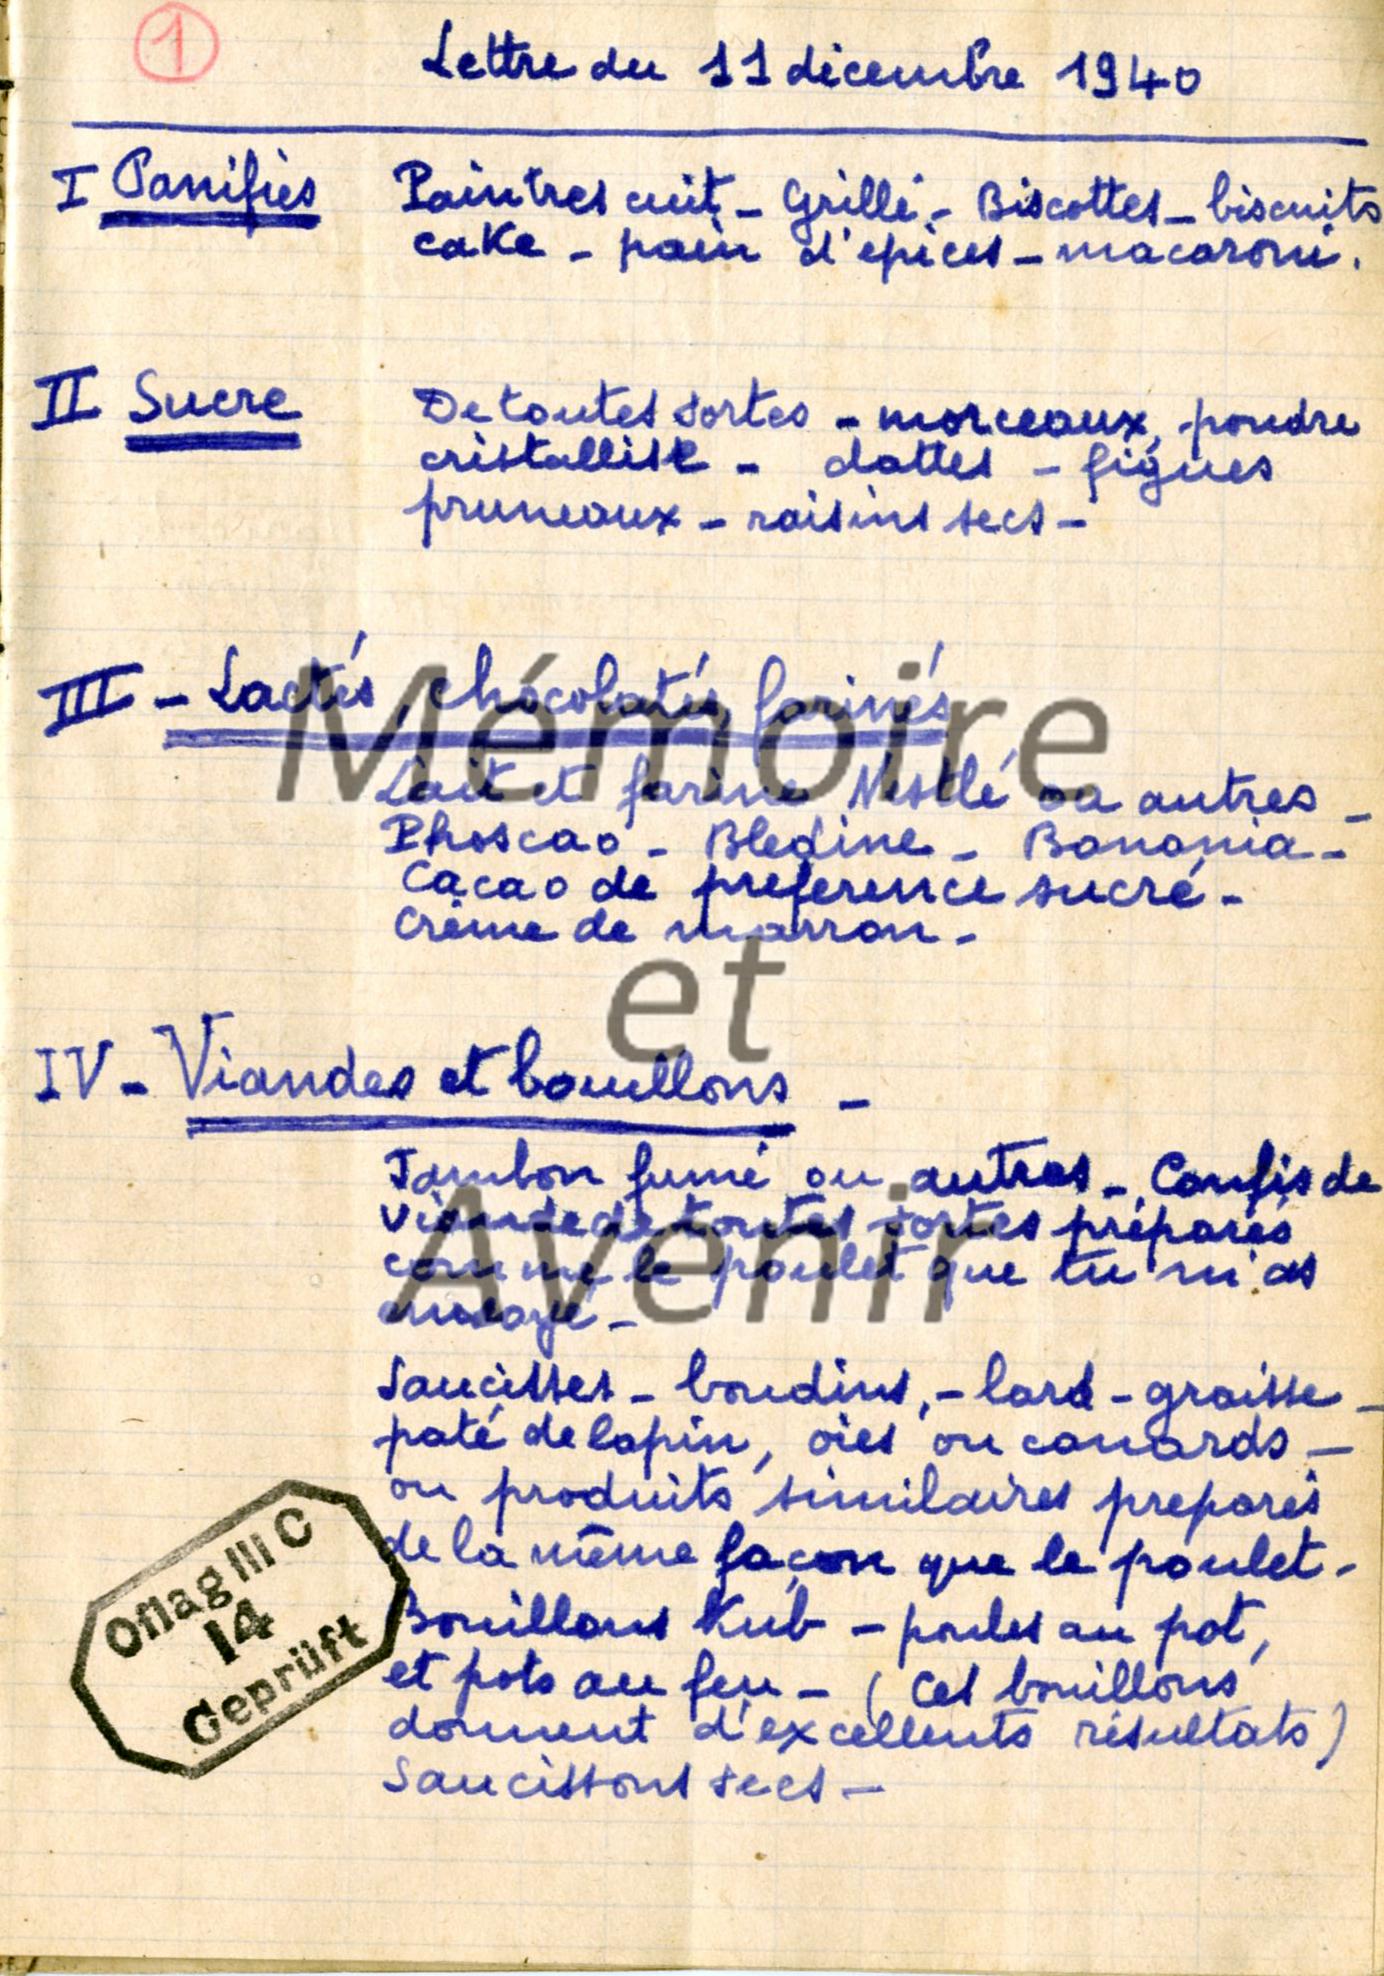 1
Lettre du 11 décembre 1940
I Panifiés Pain tres cuit - Grillé - Biscottes - biscuits
cake - pain d'epices - macaroni.
II Sucre De toutes sortes - morceaux, poudre
cristallisé - dattes - figues
pruneaux - raisins secs -
III - Lactés, chocolatés, farinés
Lait et farine Nestlé ou autres -
Phoscao - Bledine - Banania -
Cacao de preference sucré -
Crème de marron -
IV - Viandes et bouillons -
Jambon fumé ou autres - Confis de
viande de toutes sortes préparés
comme le poulet que tu m'as
envoyé -
Saucisses - boudins, - lard - graisse -
paté de lapin, oies ou canards -
ou produits similaires preparés
de la même façon que le poulet -
Bouillons Kub - poules au pot,
et pots au feu - (Ces bouillons
donnent d'excellents résultats)
Saucissons secs -
Oflag III C
14
Geprüft
Mémoire
et
Avenir